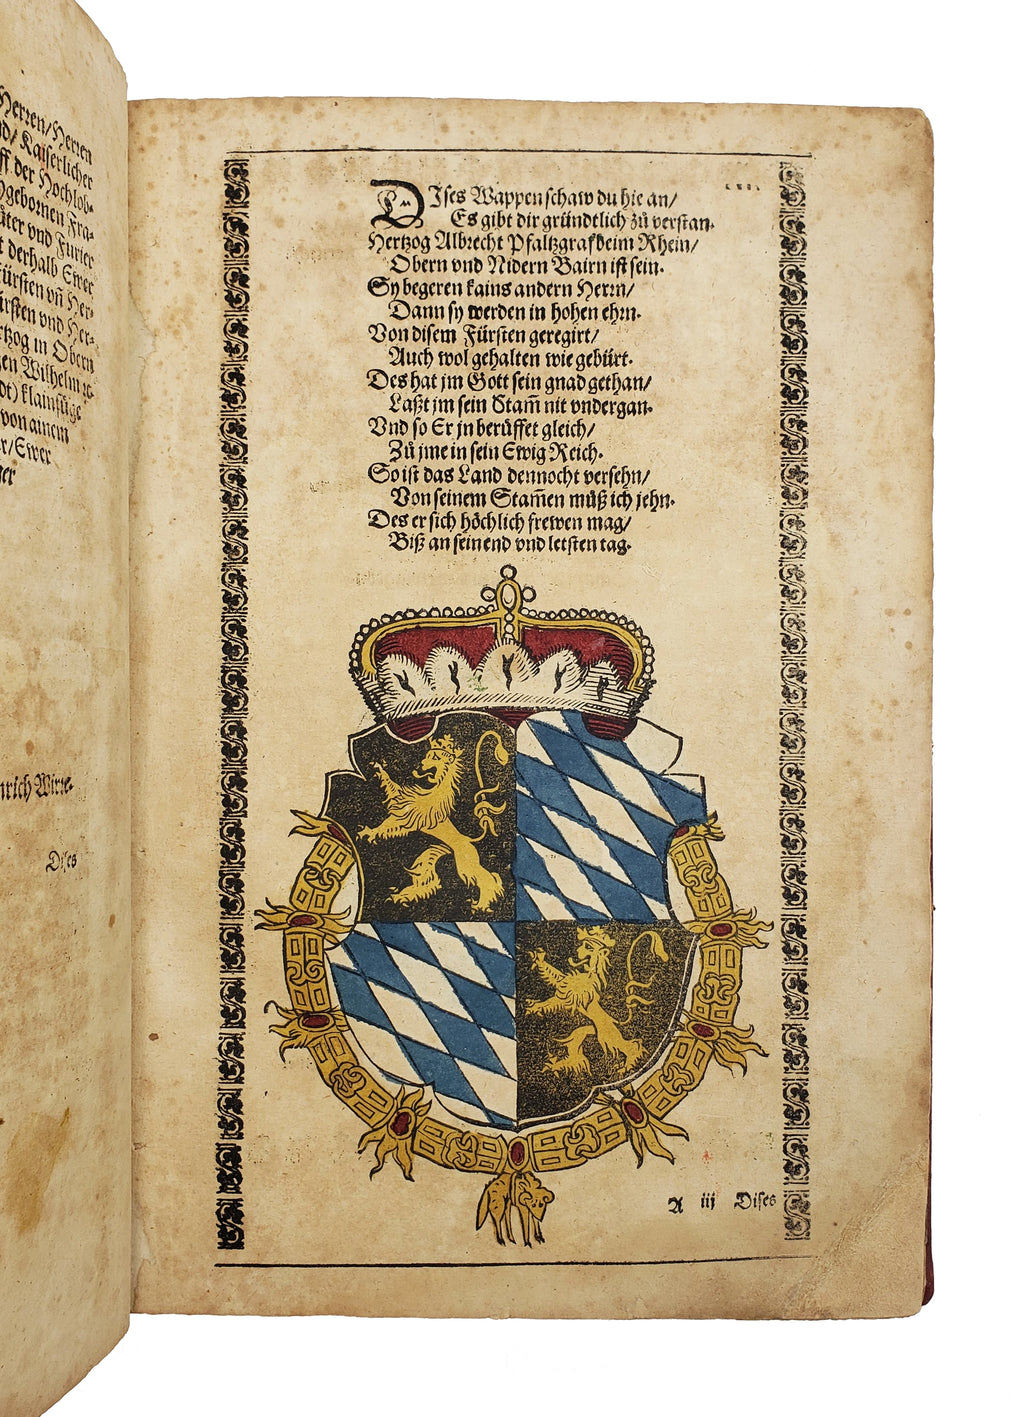 Herren/Herren
nd/ Kaiserlicher
ff der Hochlob-
hgebornen Fra-
vnd Furier
t derhalb Ewer
Fürsten vn̄ Her-
ürsten vnd Her-
rtzog in Obern
en Wilhelm ꝛc.
dt) klainfüge
von ainem
r/Ewer
ger
nrich Wirre.
Dises
DIses Wappen schaw du hie an/
Es gibt dir gründtlich zů verstan.
Hertzog Albrecht Pfaltzgraf beim Rhein/
Obern vnd Nidern Bairn ist sein.
Sy begeren kains andern Herrn/
Dann sy werden in hohen ehrn.
Von disem Fürsten geregirt/
Auch wol gehalten wie gebürt.
Des hat jm Gott sein gnad gethan/
Laßt jm sein Stam̄ nit vndergan.
Vnd so Er jn berůffet gleich/
Zů jme in sein Ewig Reich.
So ist das Land dennocht versehn/
Von seinem Stam̄en můß ich jehn.
Des er sich höchlich frewen mag/
Biß an sein end vnd letsten tag.
A iij Dises